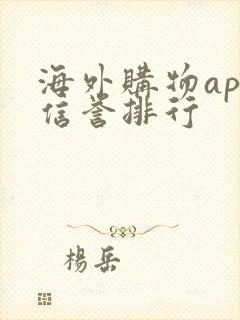 海外購物ap
信誉排行
楊岳